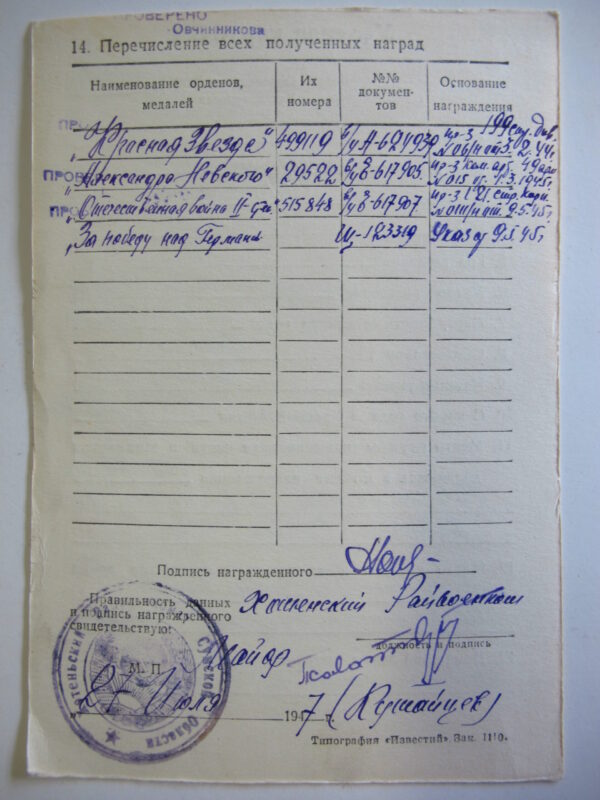 ПРОВЕРЕНО
Овчинникова
14. Перечисление всех полученных наград
Наименование орденов, медалей
Их номера
№№ документов
Основание награждения
„Красная Звезда" 499119 в/у А-624939 пр-з 199 стр. див. 44г.
„Александра Невского" 29522 617905 пр-з Ком. арт. 49 арм № 015 от 1.3.1945г.
„Отечественная война II-ст." 515848 617907 пр-з 121 стр. кор. от 9.5.45г.
„За победу над Герман. Щ-123319 Указ 9.5.45г.
Подпись награжденного
Правильность данных
и подпись награжденного
свидетельствую:
Райвоенком
Майор
должность и подпись
М. П.
„27 Июля 1947 г.
Типография «Известий». Зак. 1110.